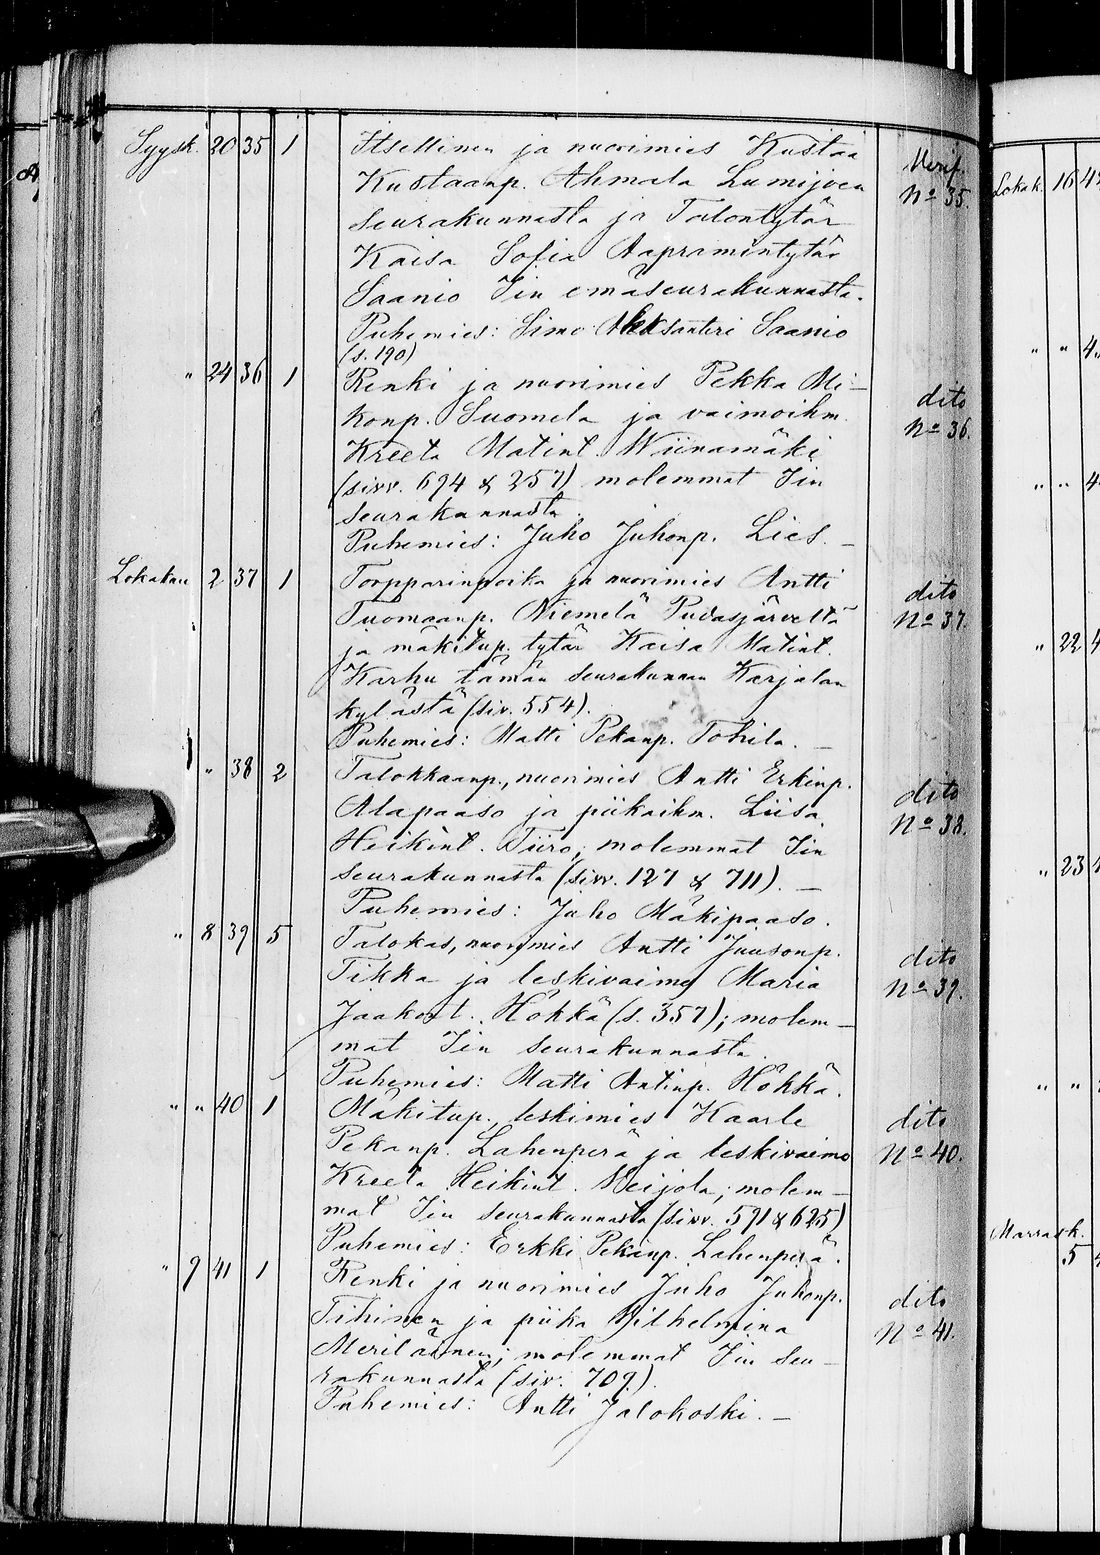 Syysk. 20 35 1 Itsellinen ja nuorimies Kustaa Verif.
Kustaanp. Ahmala Lumijoen No 35.
seurakunnasta ja Talontytär
Kaisa Sofia Aapramintytär
Saanio Iin emäseurakunnasta.
Puhemies: Simo Aleksanteri Saanio
(s. 190)
" 24 36 1 Renki ja nuorimies Pekka Mi- dito
konp. Suomela ja vaimoihm. No 36.
Kreeta Matint. Wiinamäki
(sivv. 694 & 257) molemmat Iin
seurakunnasta.
Puhemies: Juho Juhonp. Lies. –
Lokakuu 2 37 1 Torpparinpoika ja nuorimies Antti dito
Tuomaanp. Niemelä Pudasjärveltä No 37.
ja mäkitup. tytär Kaisa Matint.
Karhu tämän seurakunnan Karjalan
kylästä (siv. 554).
Puhemies: Matti Pekanp. Tohila. –
" 38 2 Talokkaanp., nuorimies Antti Erkinp. dito
Alapaaso ja piikaihm. Liisa No 38.
Heikint. Tiiro, molemmat Iin
seurakunnasta (sivv. 127 & 711). –
Puhemies: Juho Mäkipaaso.
" 8 39 5 Talokas, nuorimies Antti Juusonp. dito
Tikka ja leskivaimo Maria No 39.
Jaakont. Hökkä (s. 357); molem-
mat Iin seurakunnasta.
Puhemies: Matti Antinp. Hökkä.
" " 40 1 Mäkitup. leskimies Kaarle dito
Pekanp. Lahenperä ja leskivaimo No 40.
Kreeta Heikint. Keijola; molem-
mat Iin seurakunnasta (sivv. 591 & 625)
Puhemies: Erkki Pekanp. Lahenperä.
" 9 41 1 Renki ja nuorimies Juho Juhonp. dito
Tihinen ja piika Vilhelmina No 41.
Meriläinen; molemmat Iin seu-
rakunnasta (siv. 709)
Puhemies: Antti Jalokoski. –
Lokak. 16
" "
" "
" 22
" 23
" "
Marrask.
5